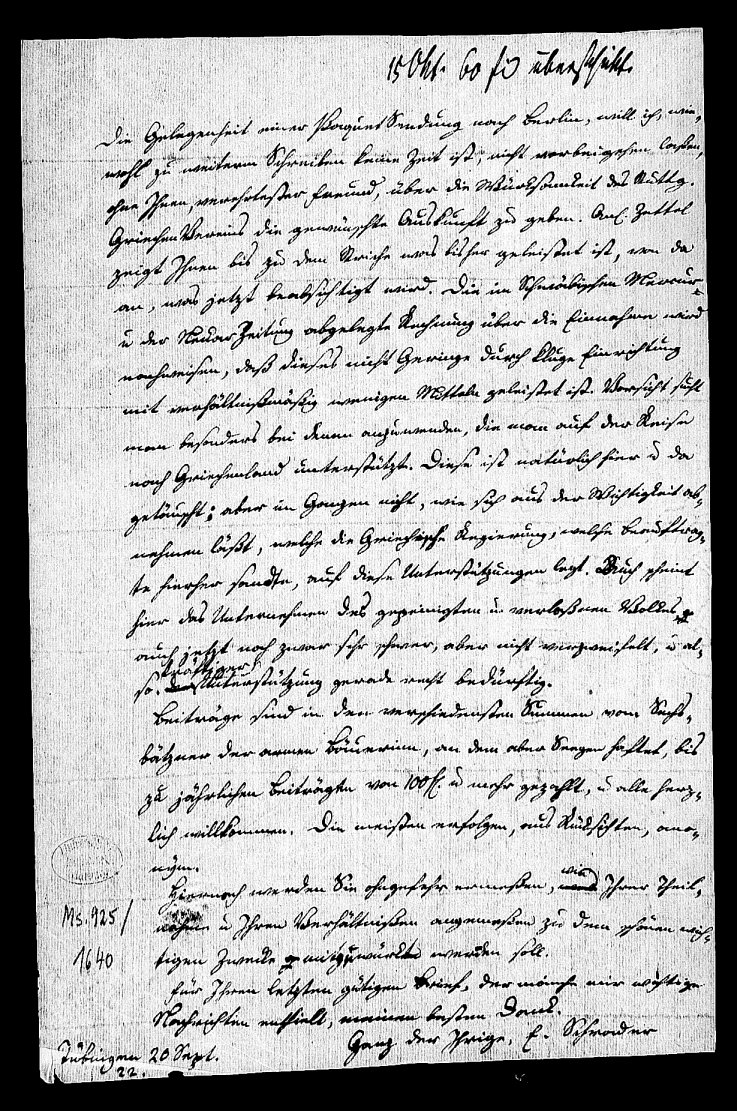 15 Okt. 60 f überschickt.
Die Gelegenheit einer PaquetSendung nach Berlin, will ich, wie-
wohl zu weiterm Schreiben keine Zeit ist, nicht vorbeigehen laßen,
ohne Ihnen, verehrtester Freund, über die Würksamkeit des Stuttg.
GriechenVereins die gewünschte Auskunft zu geben. Anl. Zettel
zeigt Ihnen bis zu dem Striche was bisher geleistet ist, von da
an, was jetzt beabsichtigt wird. Die im Schwäbischen Mercur
u der NeckarZeitung abgelegte Rechnung über die Einnahme wird
nachweisen, daß dieses nicht Geringe durch kluge Einrichtung
mit verhältnißmäßig wenigen Mitteln geleistet ist. Vorsicht sucht
man besonders bei denen anzuwenden, die man auf der Reise
nach Griechenland unterstützt. Diese ist natürlich hier u da
getäuscht; aber im Ganzen nicht, wie sich aus der Wichtigkeit ab-
nehmen läßt, welche die Griechische Regierung, welche Beauftrag-
te hierher sandte, auf diese Unterstützungen legt. Auch scheint
hier das Unternehmen des gepeinigten u verlaßnen Volkes
auch jetzt noch zwar sehr schwer, aber nicht verzweifelt, u al-
so kräftiger Unterstützung gerade recht bedürftig.
Beiträge sind in den verschiedensten Summen vom Sechs-
bätzner der armen Bäuerinn, an dem aber Seegen haftet, bis
zu jährlichen Beiträgen von 100 f. u mehr gezahlt, u alle herz-
lich willkommen. Die meisten erfolgen, aus Rücksichten, ano-
nym.
Hiernach werden Sie ohngefehr ermeßen, wie Ihrer Theil-
nahme u Ihren Verhältnißen angemeßen zu dem schönen wich-
tigen Zwecke mitgewürkt werden soll.
Für Ihren letzten gütigen Brief, der manche mir wichtige
Nachrichten enthielt, meinen besten Dank.
Ganz der Ihrige, E. Schrader
Tübingen 20 Sept.
22.
Ms. 925/
1640